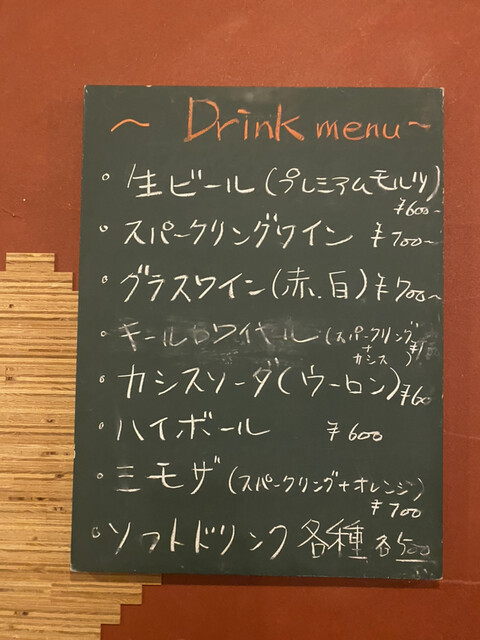 ~ Drink menu ~
○ 生ビール(プレミアムモルツ)
¥600~
○ スパークリングワイン ¥700~
○ グラスワイン(赤.白) ¥700~
○ キールロワイヤル(スパークリング
+
カシス)
○ カシスソーダ(ウーロン) ¥60
○ ハイボール ¥600
○ ミモザ(スパークリング+オレンジ)
¥700
○ ソフトドリンク 各種 各500